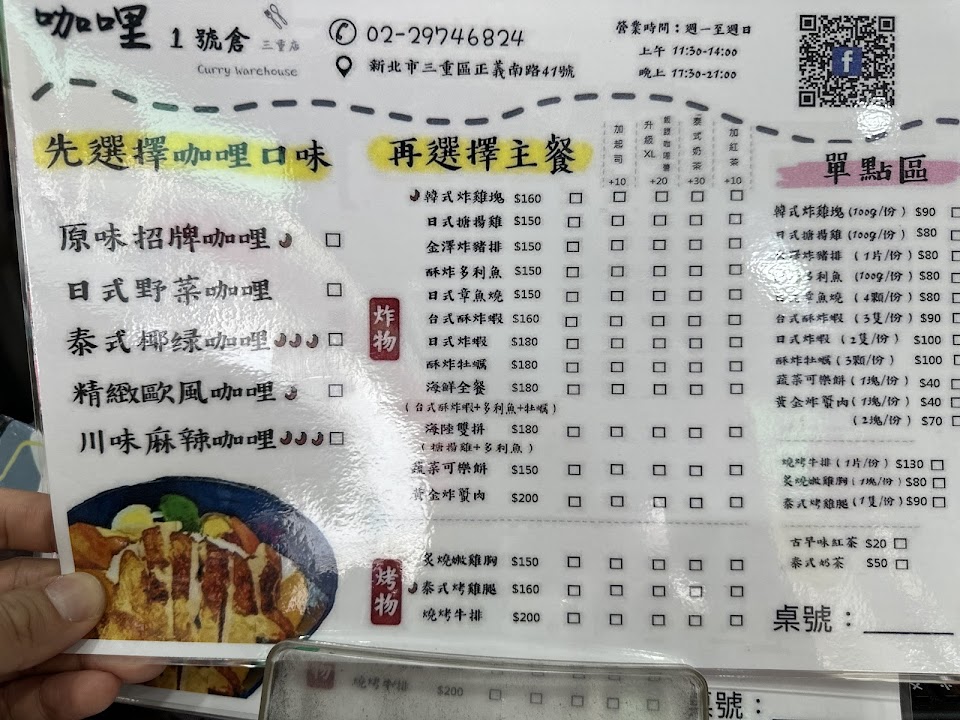 咖哩 1 號倉 三重店
Curry Warehouse
02-29746824
新北市三重區正義南路41號
營業時間：週一至週日
上午 11:30-14:00
晚上 17:30-21:00
先選擇咖哩口味
原味招牌咖哩
日式野菜咖哩
泰式椰绿咖哩
精緻歐風咖哩
川味麻辣咖哩
再選擇主餐
加起司 +10
升級XL +20
泰式奶茶 +30
加紅茶 +10
炸物
韓式炸雞塊 $160
日式搪揚雞 $150
金澤炸豬排 $150
酥炸多利魚 $150
日式章魚燒 $150
台式酥炸蝦 $160
日式炸蝦 $180
酥炸牡蠣 $180
海鮮全餐 $180
(台式酥炸蝦+多利魚+牡蠣)
海陸雙拼 $180
(搪揚雞+多利魚)
蔬菜可樂餅 $150
黃金炸蟹肉 $200
烤物
炙燒嫩雞胸 $150
泰式烤雞腿 $160
燒烤牛排 $200
單點區
韓式炸雞塊 (100g/份) $90
日式搪揚雞 (100g/份) $80
炸豬排 (1片/份) $80
多利魚 (100g/份) $80
章魚燒 (4顆/份) $80
台式酥炸蝦 (3隻/份) $90
日式炸蝦 (2隻/份) $100
酥炸牡蠣 (3顆/份) $100
蔬菜可樂餅 (1塊/份) $40
黃金炸蟹肉 (1塊/份) $40
(2塊/份) $70
燒烤牛排 (1片/份) $130
炙燒嫩雞胸 (1塊/份) $80
泰式烤雞腿 (1隻/份) $90
古早味紅茶 $20
泰式奶茶 $50
桌號：
燒烤牛排 $200
桌號：